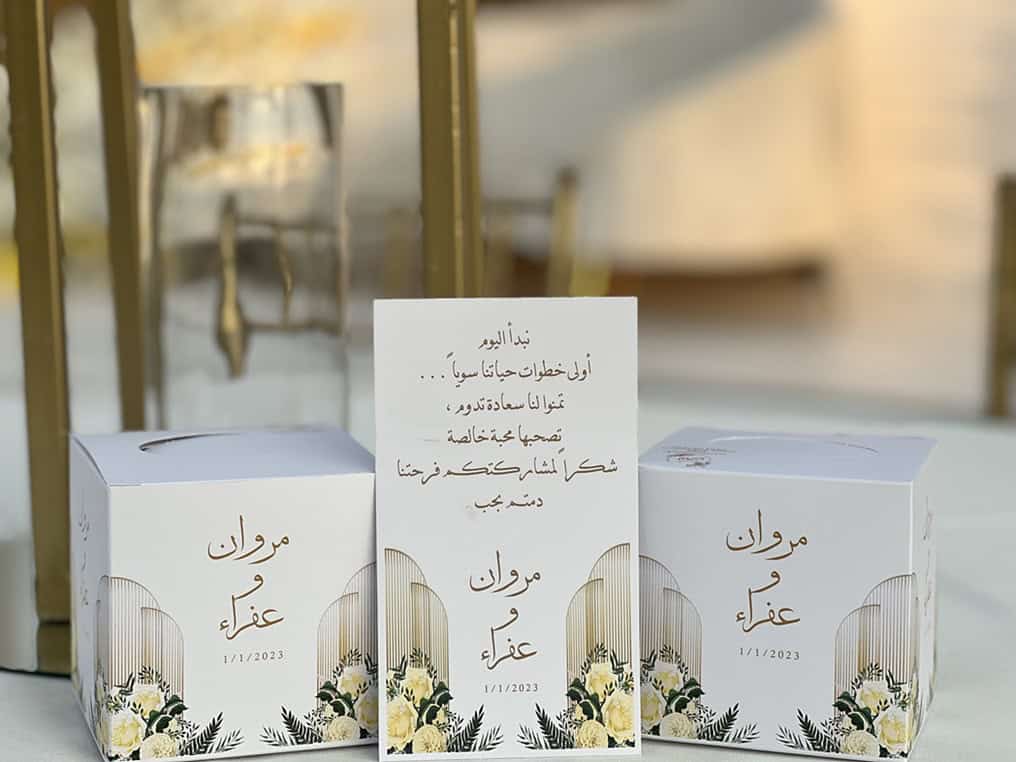 نبدأ اليوم
أولى خطوات حياتنا سوياً ...
تمنوا لنا سعادة تدوم ،
تصحبها محبة خالصة
شكراً لمشاركتكم فرحتنا
دمتم بحب
مروان
و
عفراء
1/1/2023
مروان
و
عفراء
1/1/2023
مروان
و
عفراء
1/1/2023